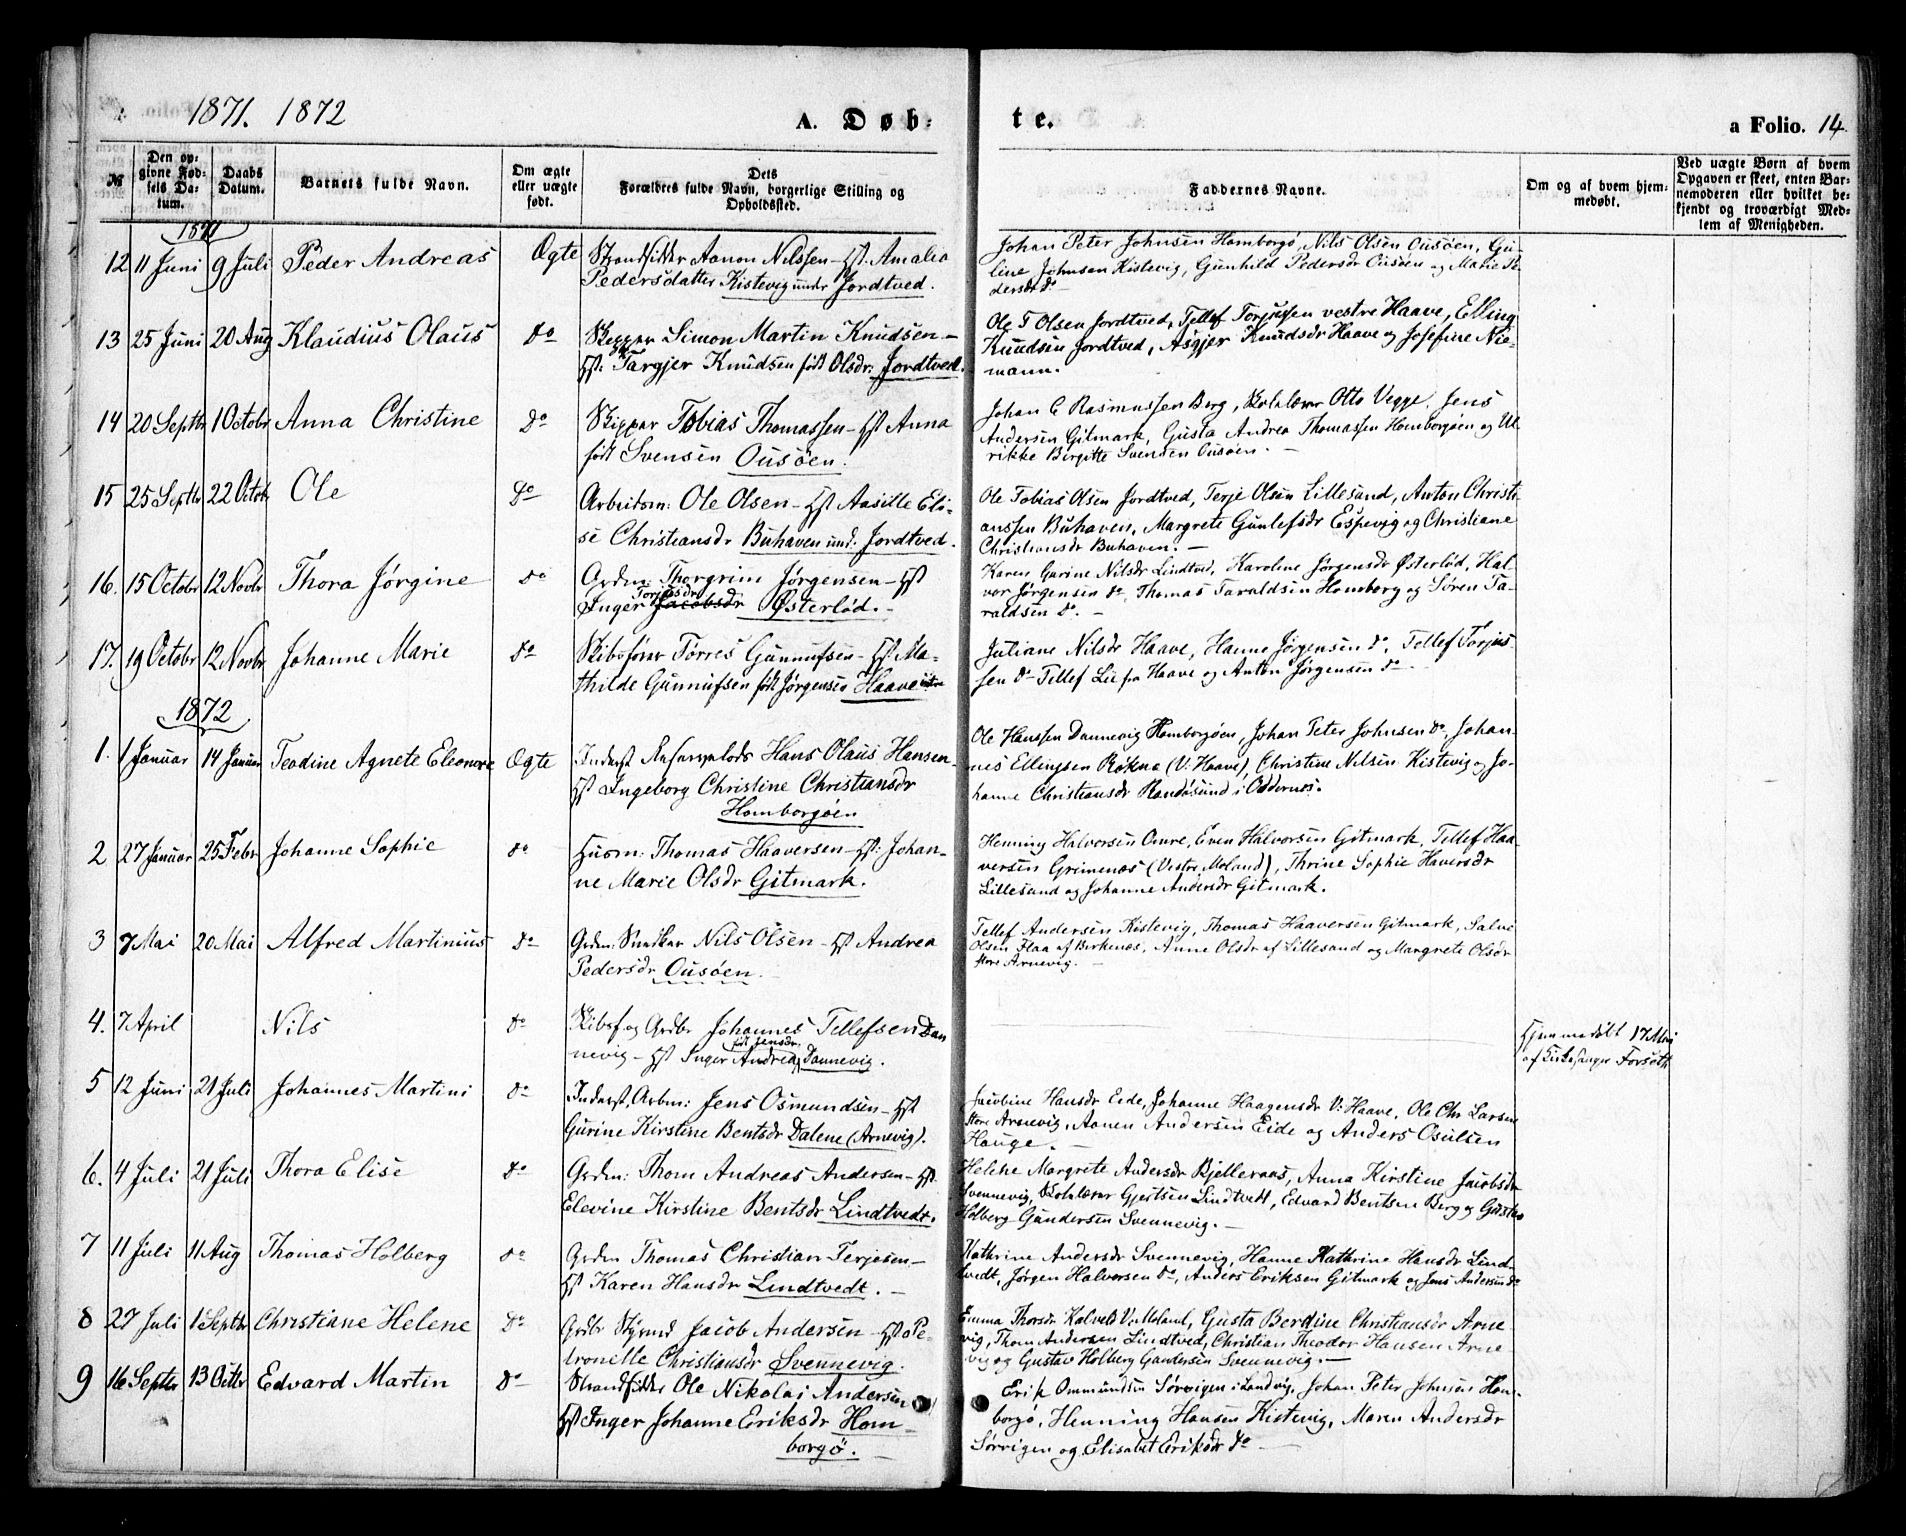 1871. 1872 A. Døb- te. a Folio. 14.
№ Den opgivne Fødsels Datum. Daabs Datum. Barnets fulde Navn. Om ægte eller uægte født. Dets Forældres fulde Navn, borgerlige Stilling og Opholdssted. Faddernes Navne. Om og af hvem hjemmedøbt. Ved uægte Børn af hvem Opgaven er skeet, enten Barnemoderen eller hvilket bekjendt og troværdigt Medlem af Menigheden.
1871
12 11 Juni 9 Juli Peder Andreas Ægte Strandsidder Aanon Nilssen - Hst. Amalia
Pedersdatter Kistevig under Jordtved.
Johan Peter Johnsen Homborgø, Nils Olsen Ousøen, Gu-
line Johnsen Kistevig, Gunhild Pedersdr Ousøen og Marie Pe-
dersdr do
13 25 Juni 20 Aug Klaudius Olaus do Skipper Simon Martin Knudsen -
Hst: Targjer Knudsen født Olsdr: Jordtved.
Ole T Olsen Jordtved, Tellef Torjussen vestre Haave, Elling
Knudsen Jordtved, Asgjer Knudsdr Haave og Josefine Nie-
mann.
14 20 Septbr 1 Octobr Anna Christine do Skipper Tobias Thomassen - Hst Anna
født Svensen Ousøen.
Johan C Rasmussen Berg, Skolelærer Otto Vegge, Jens
Andersen Gitmark, Gusta Andrea Thomassen Homborgøen og Ul-
rikke Birgitte Svensen Ousøen. -
15 25 Septbr 22 Octob Ole do Arbeidsm: Ole Olsen - Hst Aasille Eli-
se Christiansdr Buhaven und. Jordtved.
Ole Tobias Olsen Jordtved, Terje Olsen Lillesand, Anton Christi-
anssen Buhaven, Margrete Gunlefsdr Espevig og Christiane
Christiansdr Buhaven. -
16. 15 Octobr 12 Novbr Thora Jørgine do Grdm: Thorgrim Jørgensen - Hst
Inger Jacobsdr Torjesdr Østerlød. -
Karen Gurine Nilsdr Lindtved, Karoline Jørgensdr Østerlød, Hal-
vor Jørgensen do, Thomas Taraldsen Homborg og Søren Ta-
raldsen do. -
17. 19 Octobr 12 Novbr Johanne Marie do Skibsfører Tørres Gunnufsen - Hst. Ma-
thilde Gunnufsen født Jørgensen Haave
Juliane Nilsdr Haave, Hanne Jørgensen do, Tellef Torjus-
sen do Tellef Lie fra Haave og Anton Jørgensen do -
1872
1. 1 Januar 14 Januar Teodine Agnete Eleonore Ægte Inderst Hans Olaus Hansen -
Hst Ingeborg Christine Christiansdr
Homborgøen
Ole Hanssen Dannevig Homborgøen, Johan Peter Johnsen do, Johan-
nes Ellingsen Røkna (V: Haave), Christine Nilsen Kistevig og Jo-
hanne Christiansdr Randøsund i Oddernes.
2 27 Januar 25 Febr Johanne Sophie do Husm: Thomas Haaversen - Hst: Johan-
ne Marie Olsdr Gitmark.
Henning Halvorsen Omre, Even Halvorsen Gitmark, Tellef Haa-
versen Grimenæs (Vestre Moland), Thrine Sophie Haversdr
Lillesand og Johanne Andersdr Gitmark.
3 7 Mai 20 Mai Alfred Martinius do Grdm: Snedker Nils Olsen - Hst Andrea
Pedersdr Ousøen.
Tellef Andersen Kistevig, Thomas Haaversen Gitmark, Salve
Olsen Flaa af Birkenæs, Anne Olsdr af Lillesand og Margrete Olsdr
store Arnevig. -
4. 7 April Nils do Skibsf. og Grdbr Johannes Tellefsen Dan
nevig - Hst Inger Andrea født Jensdr. Dannevig.
Hjemmedøbt 17 Mai
af Kirkesanger Forsøth
5 12 Juni 21 Juli Johannes Martini do Inderst, Arbm: Jens Osmundsen - Hst
Gurine Kirstine Bentsdr Dalene (Arnevig).
Jacobine Hansdr Eide, Johanne Haagensdr V: Haave, Ole Chr Larsen
store Arnevig, Aanen Andersen Eide og Anders Osulsen
Hauge. -
6. 4 Juli 21 Juli Thora Elise do Grdm: Thom Andreas Andersen - Hst.
Elevine Kirstine Bentsdr Lindtvedt.
Helene Margrete Andersdr Bjelleraas, Anna Kirstine Jacobsdr
Svennevig, Skolelærer Gjertsen Lindtvedt, Edvard Bentsen Berg og Gustav
Holberg Gundersen Svennevig. -
7 11 Juli 11 Aug Thomas Holberg do Grdm Thomas Christian Terjesen -
Hst Karen Hansdr Lindtvedt. -
Kathrine Andersdr Svennevig, Hanne Kathrine Hansdr Lind-
tvedt, Jørgen Halvorsen do, Anders Eriksen Gitmark og Jens Andersen do
8 27 Juli 1 Septbr Christiane Helene do Grdbr Styrmd Jacob Andersen - Hst Pe-
tronelle Christiansdr Svennevig.
Emma Thorsdr Kalvets V. Moland, Gusta Berdine Christiansdr Arne-
vig, Thom Andersen Lindtved, Christian Theodor Hansen Arne-
vig og Gustav Holberg Gundersen Svennevig. -
9 16 Septbr 13 Octbr Edvard Martin do Strandsidder Ole Nikolai Andersen
Hst Inger Johanne Eriksdr Hom-
borgø. -
Erik Ommundsen Sørvigen i Landvig, Johan Peter Johnsen Hom-
borgø, Henning Hansen Kistevig, Maren Andersdr
Sørvigen og Elisabet Eriksdr do -